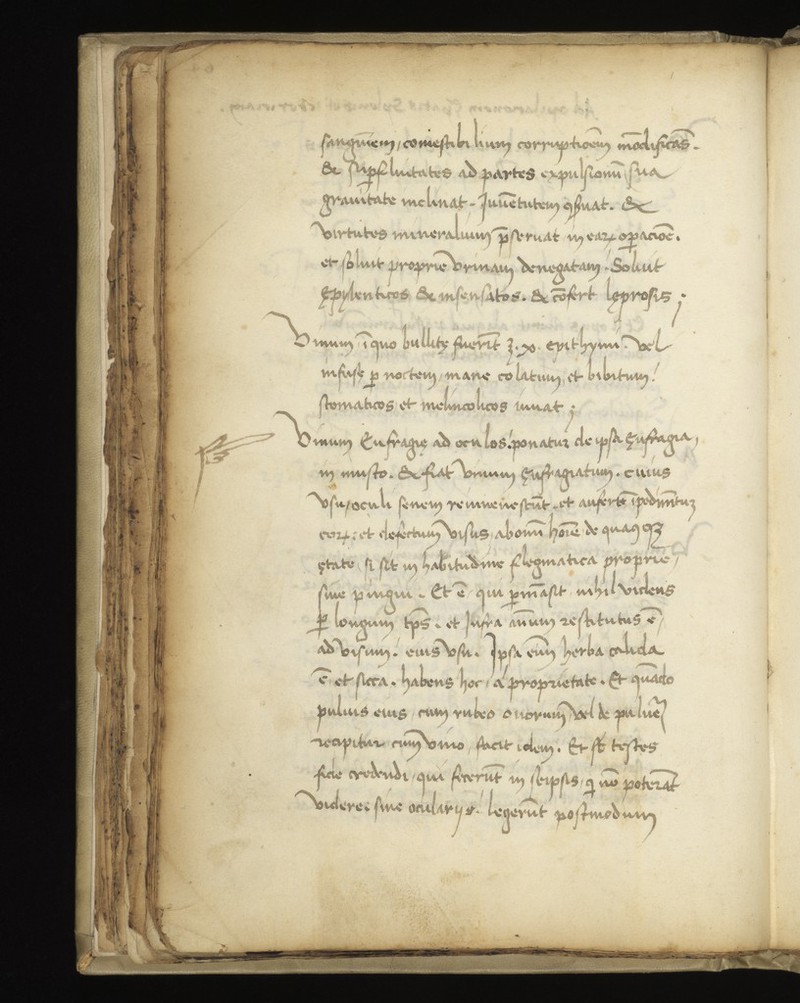 sanguinem, comestibilium corruptioēm mōdificās.
& sup̄fluitates ad partes expulsionū sua
grauitate inclinat. Iuuētutem ꝯseruat. &
virtutes mineralium p̄seruat in eaꝝ op̄acioē.
et soluit proprie vrinam denegatam. Soluit
ępylenticos & insensatos. & cōfert lęprosis;
Vinum ī quo bullitę fuerīt ʒ. x. epithymi. vel
infusę ꝑ noctem, mane colatum, et bibitum.
stomaticos et melincolicos iuuat;
Vinum Eufragię ad oculos. ponatur de ipsa ęufragia,
in musto. & fiat vinum ęufragiatum. cuius
vsu, oculi senem reiuuenescūt. et
eoꝝ: et defectum visus, ab omī hoīe de quacꝗ
ętate, si sit in habitudine flegmatica proprie,
siue pingui. Et ē qui ꝑmāsit nihil videns
ꝑ longum tp̄s. et infra annum restitutus ē,
ad visum. eius vsu. Ipsa eīm herba calida
ē et sicca. habens hoc, a proprietate. Et quādo
puluis eius, cum rubeo ouorum, vel de puluē
recipitur cum vino, facit idem. Et st̄ testes
fide credendi, qui fecerūt in seipsis, q̄ nō poterāt
videre, sine ocularijs. legerūt postmodum